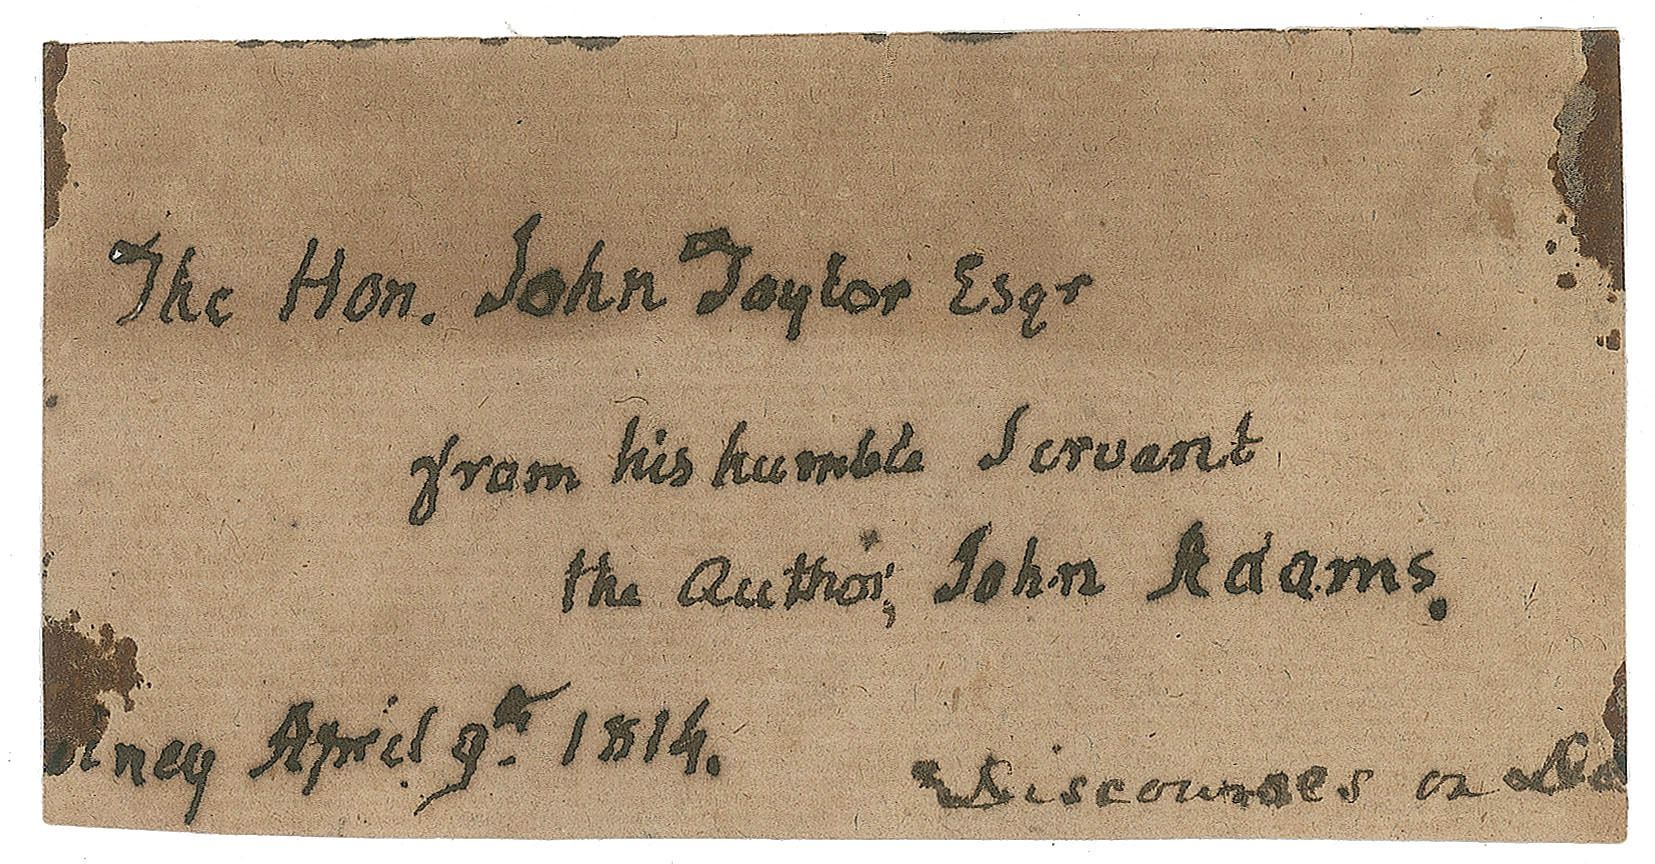 The Hon. John Taylor Esqr
from his humble Servant
the Author, John Adams.
iney April 9th. 1814.
Discourses on Da